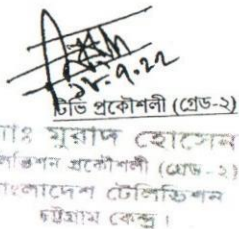 ১৮.৭.২২
টিভি প্রকৌশলী (গ্রেড-২)
মোঃ মুরাদ হোসেন
প্রকৌশলী (গ্রেড-২)
বাংলাদেশ টেলিভিশন
চট্টগ্রাম কেন্দ্র।